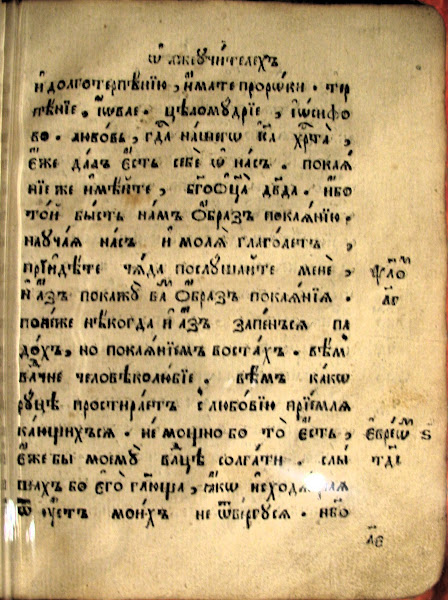 ѽ лжеꙋчи́телехъ
и҆ долготерпѣ́нїю, и҆́мате проро́ки. тер
пѣ́нїе, і҆ѡ́вле. цѣломꙋ́дрїе, і҆ѡ́сифо
во. любо́вь, гдⷭ҇а на́шегѡ і҆с҃а хрⷭ҇та̀,
є҆́же да́лъ є҆́сть себѐ ѽ на́съ. покаѧ́
нїе же и҆мѣ́йте, бг҃оѻц҃а̀ дв҃да. и҆́бо
то́й бы́сть на́мъ ѻ҆́бразъ покаѧ́нїю.
наꙋча́ѧ на́съ и҆ молѧ̀ глаго́летъ,
прїиди́те ча̑да послꙋ́шайте менѐ,
и҆ а҆́зъ покажꙋ̀ ва́мъ ѻ҆́бразъ покаѧ́нїѧ.
поне́же нѣ́когда и҆ а҆́зъ запе́нъсѧ па
до́хъ, но покаѧ́нїемъ воста́хъ. вѣ́мъ
вл҃чне человѣколю́бїе. вѣ́мъ ка́кѡ
рꙋ́цѣ простира́етъ с̾ любо́вїю прїе́млѧ
ка́ющихъсѧ. не мо́щно бо то̀ є҆́сть,
є҆́же бы моемꙋ̀ влⷣцѣ солга́ти. слы́
шахъ бо є҆го̀ гл҃юща, ꙗ҆́кѡ и҆сходѧ́щаѧ
ѿ ᲂу҆́стъ мои́хъ не ѿве́ргꙋсѧ. и҆́бо
ѱало́м
л҃г
є҆вре́ѡм ѕ҃
т҃ді
л҃є